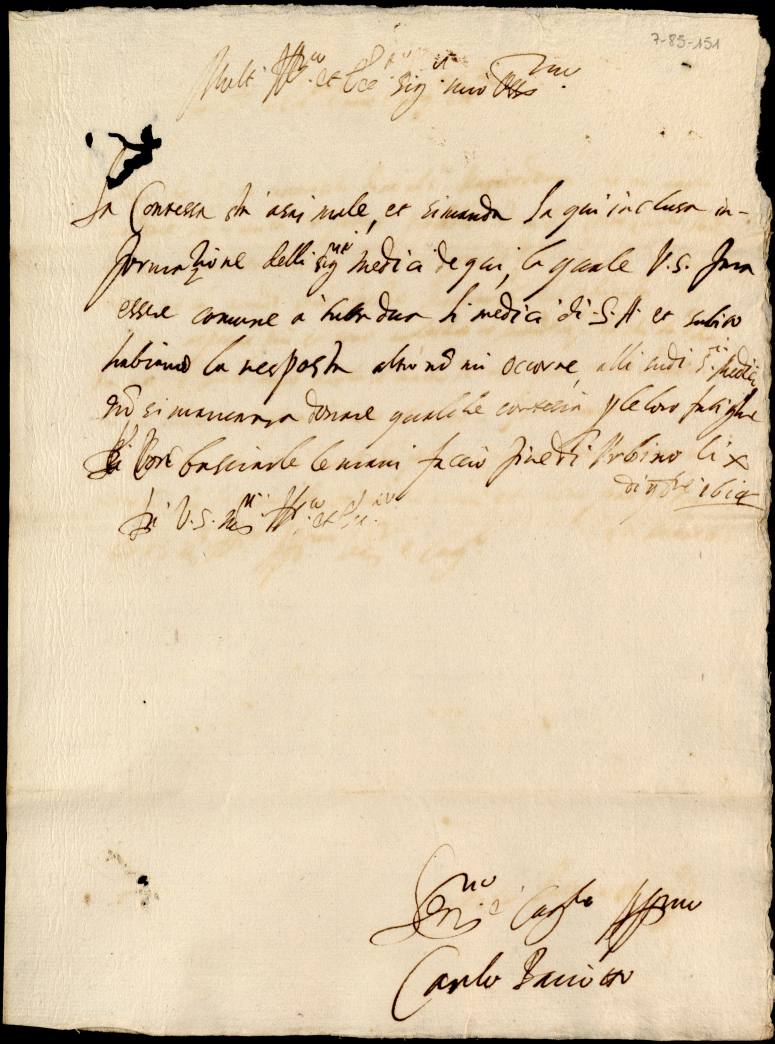 7-85-151
Molt Ill.re et Ecc.te Sig.r mio Oss.mo
La Contessa sta assai male, et si manda la qui inclusa in-
formazione delli sig.ri medici de qui, la quale V.S. farà
essere comune a tutta dua li medici di S.A. et subito
habiamo la resposta altro nō mi occorre, alli sudi S.ri medici
nō si mancarà donare qualche cortesia p le loro fatighe
basciarle le mani faccio fine di Urbino li x
di 1614
Di V.S. Ill.re et
Carlo